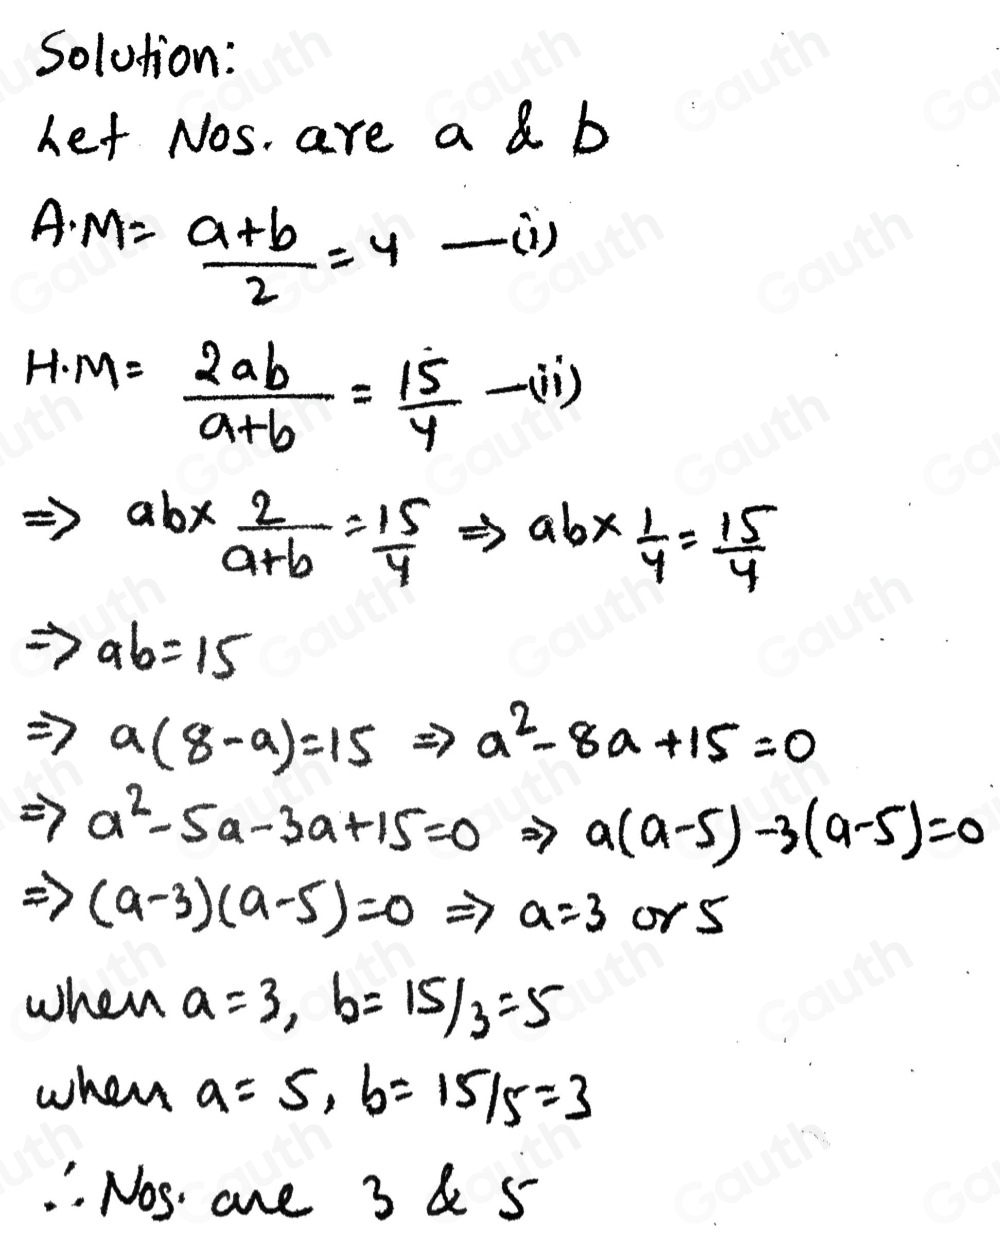 Solution:
Let Nos. are a & b
A.M = (a+b)/2 = 4 —(i)
H.M = 2ab/(a+b) = 15/4 —(ii)
⇒ ab × 2/(a+b) = 15/4 ⇒ ab × 1/4 = 15/4
⇒ ab = 15
⇒ a(8-a) = 15 ⇒ a² - 8a + 15 = 0
⇒ a² - 5a - 3a + 15 = 0 ⇒ a(a-5) - 3(a-5) = 0
⇒ (a-3)(a-5) = 0 ⇒ a = 3 or 5
when a = 3, b = 15/3 = 5
when a = 5, b = 15/5 = 3
∴ Nos. are 3 & 5
Gauth